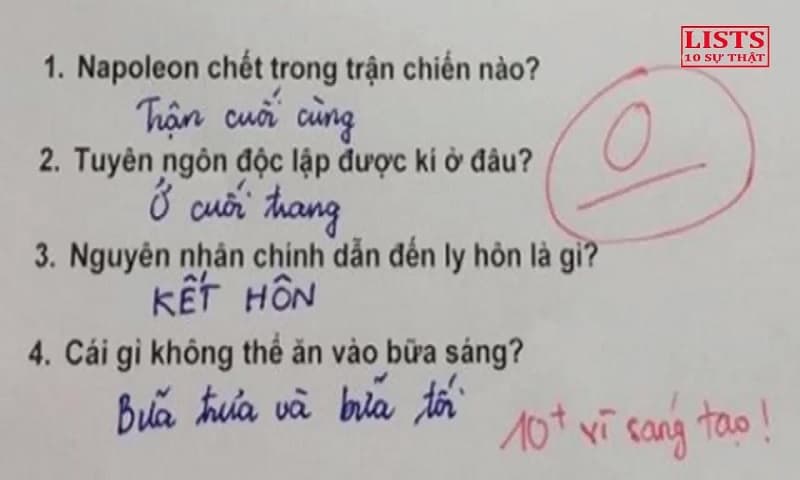 LISTS
10 SỰ THẬT
1. Napoleon chết trong trận chiến nào?
Trận cuối cùng
0
2. Tuyên ngôn độc lập được kí ở đâu?
Ở cuối trang
3. Nguyên nhân chính dẫn đến ly hôn là gì?
KẾT HÔN
4. Cái gì không thể ăn vào bữa sáng?
Bữa trưa và bữa tối
10+ vì sáng tạo!